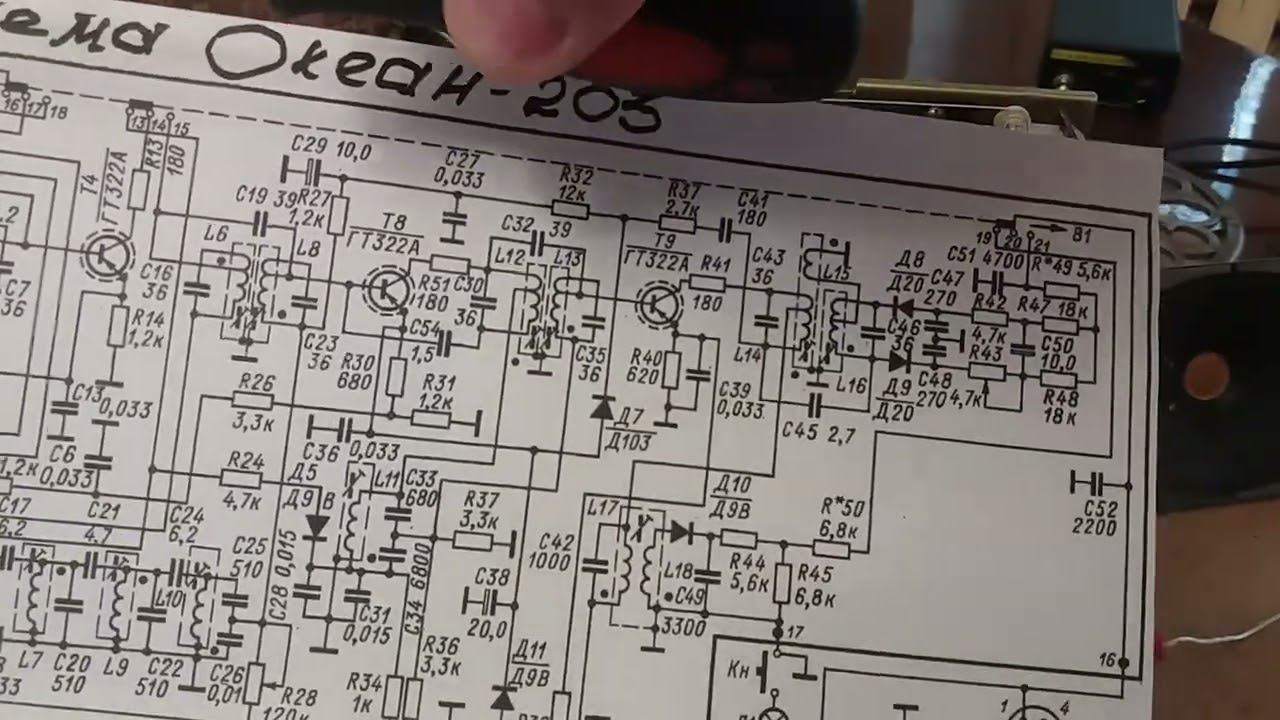 ема Океан-205
16 17 18
13 14 15
R13
180
T4
ГТ322А
C29 10,0
C27
0,033
R32
12к
R37
2,7к
C41
180
19 20 21
B1
C19 39
R27
1,2к
T8
ГТ322А
C32
39
T9
ГТ322А
R41
180
C43
36
L6
L8
L12
L13
L15
Д8
Д20
C47
270
C51 4700
R*49 5,6к
R42
4,7к
R47
18к
C7
36
C16
36
R51
180
C30
36
R14
1,2к
C23
36
C54
1,5
R30
680
C35
36
R40
620
C39
0,033
L14
L16
C46
36
R43
4,7к
C50
10,0
Д9
Д20
C48
270
R48
18к
C45 2,7
R26
3,3к
R31
1,2к
C13
0,033
C6
0,033
C36 0,033
Д7
Д103
1,2к
C17
6,2
R24
4,7к
Д5
Д9В
L11
C33
680
R37
3,3к
L17
Д10
Д9В
R*50
6,8к
C52
2200
C21
4.7
C24
6,2
C25
510
C28 0,015
C42
1000
R44
5,6к
R45
6,8к
L18
C49
3300
L10
C31
0,015
C34 6800
C38
20,0
17
16
L7
C20
510
L9
C22
510
C26
0,01
R28
120к
R34
1к
R36
3,3к
Д11
Д9В
Кн
1
4